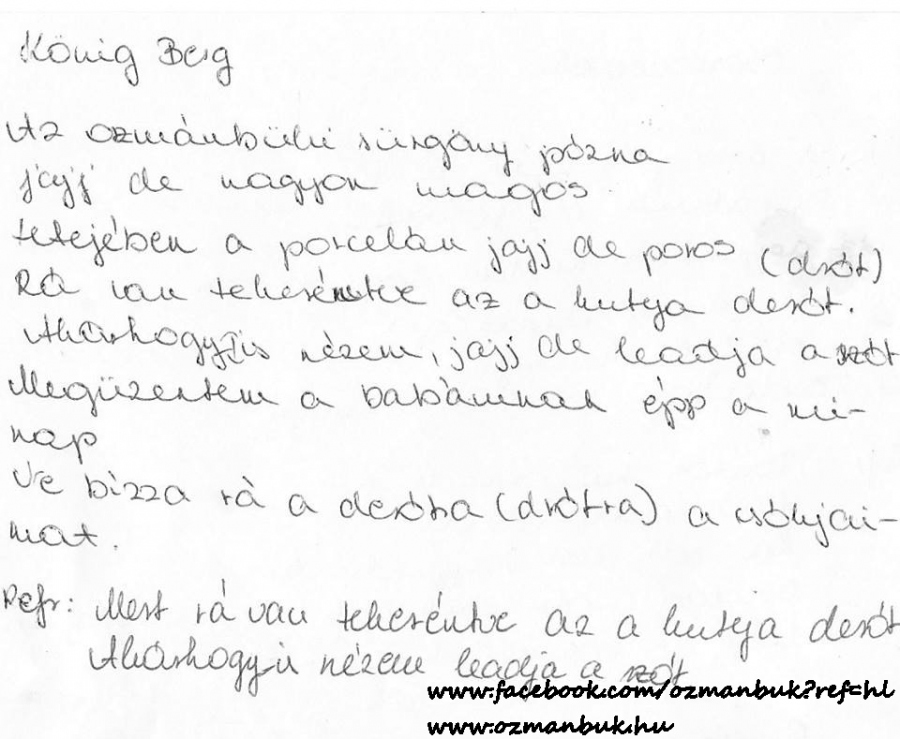 König Berg
Az ozmánbüki sürgöny pózna
jajj de nagyon magos
tetejében a porcelán jajj de poros (drót)
Rá van tekeréntve az a kutya derót.
Akárhogyis nézem, jajj de leadja a szót
Megüzentem a babámnak épp a mi-
nap
Ne bizza rá a derótra (drótra) a csókjai-
mat.
Refr: Mert rá van tekeréntve az a kutya derót
Akárhogyis nézem leadja a szót
www.facebook.com/ozmanbuk?ref=hl
www.ozmanbuk.hu